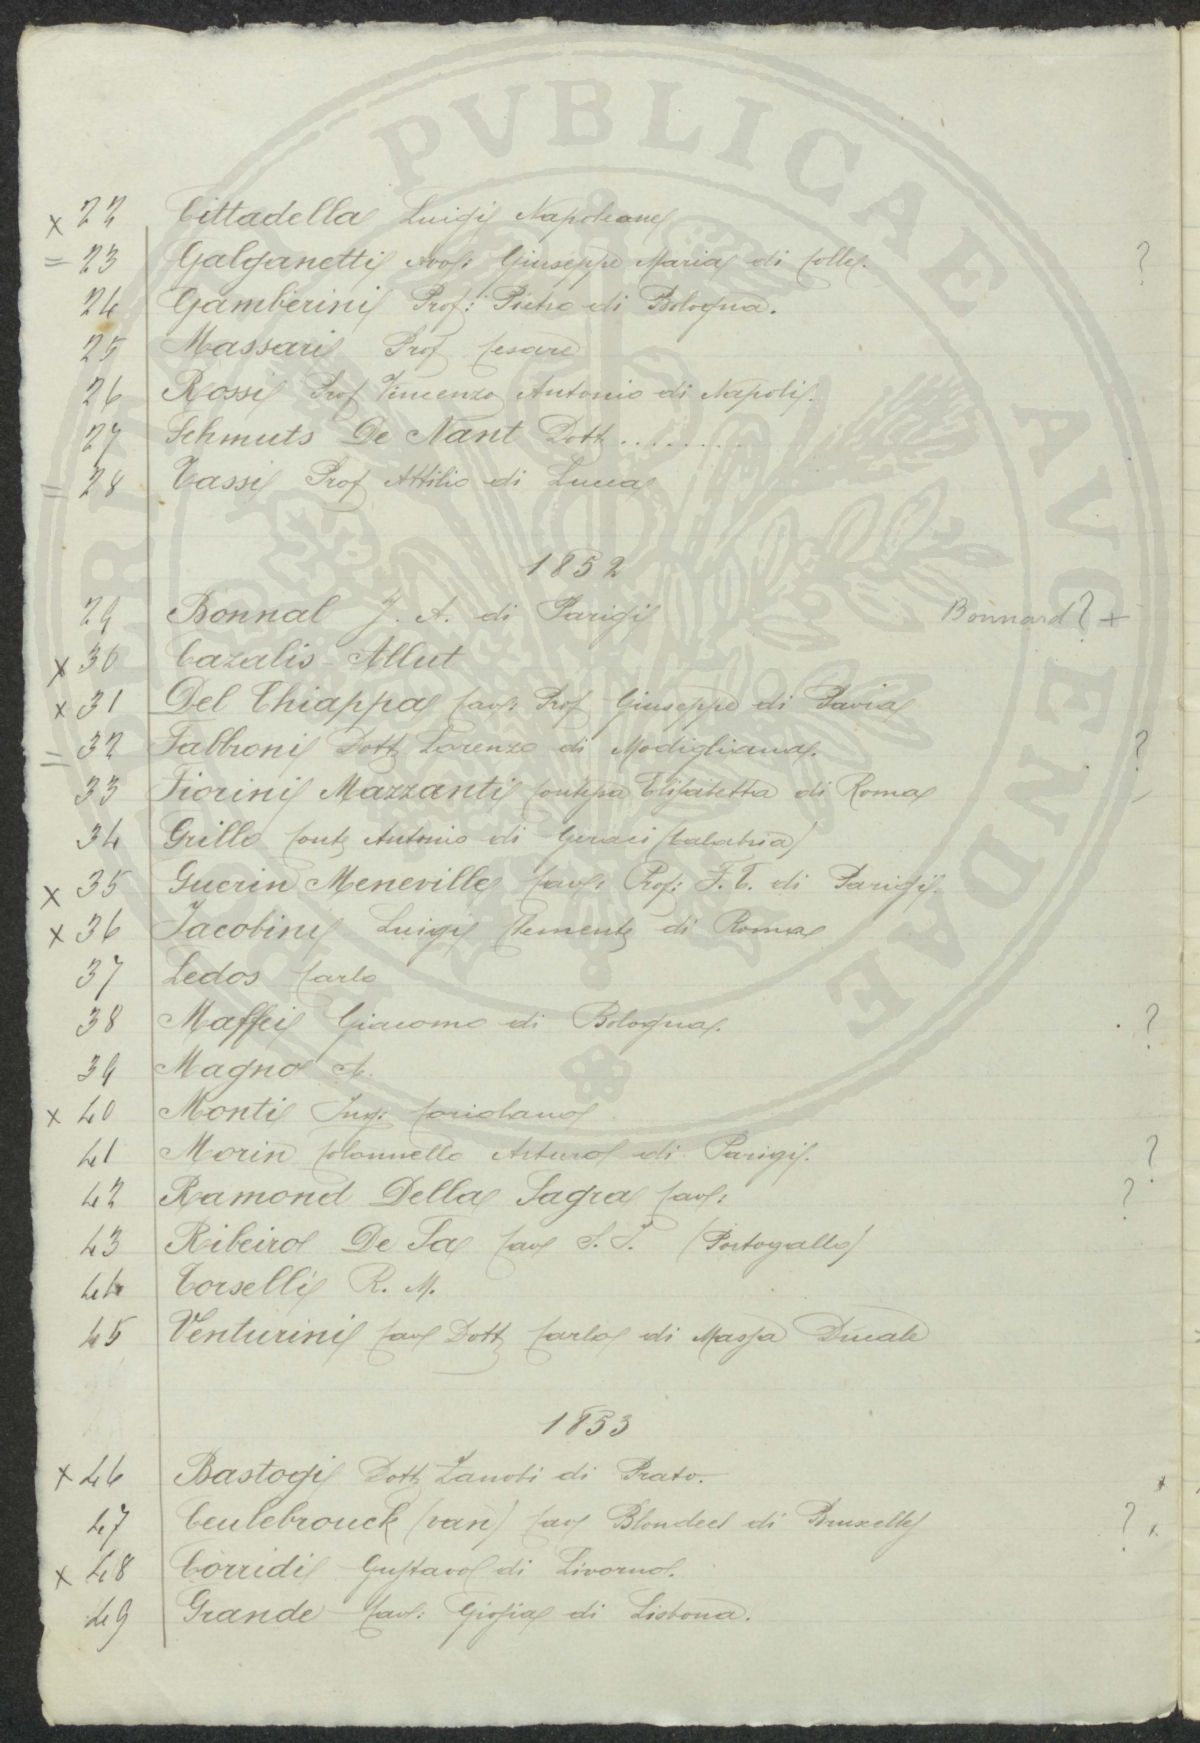 PVBLICAE AVGENDAE
x 22 Cittadella Luigi Napoleone
= 23 Galganetti Avv: Giuseppe Maria di Colle. ?
24 Gamberini Prof: Pietro di Bologna.
25 Massari Prof Cesare
26 Rossi Prof Vincenzo Antonio di Napoli.
27 Schmuts De Nant Dott ........
= 28 Tassi Prof Attilio di Lucca
1852
29 Bonnal J. A. di Parigi Bonnard? +
x 30 Cazalis-Allut
x 31 Del Chiappa Cav: Prof Giuseppe di Pavia
= 32 Fabbroni Dott Lorenzo di Modigliana. ?
33 Fiorini Mazzanti Contessa Elisabetta di Roma
34 Grillo Conte Antonio di Geraci (Calabria)
x 35 Guerin Meneville Cav: Prof: F. E. di Parigi.
x 36 Jacobini Luigi Clemente di Roma
37 Ledos Carlo
38 Maffei Giacomo di Bologna. ?
39 Magno A.
x 40 Monti Ing: Coriolano
41 Morin Colonnello Arturo di Parigi. ?
42 Ramond Della Sagra Cav: ?
43 Ribeiro De Sa Cav S. J. (Portogallo)
44 Torselli R. M.
45 Venturini Cav Dott Carlo di Massa Ducale
1853
x 46 Bastogi Dott Zanobi di Prato.
47 Ceulebrouck (van) Cav Blondeel di Bruxelles ?
x 48 Corridi Gustavo di Livorno.
49 Grande Cav: Giosia di Lisbona.